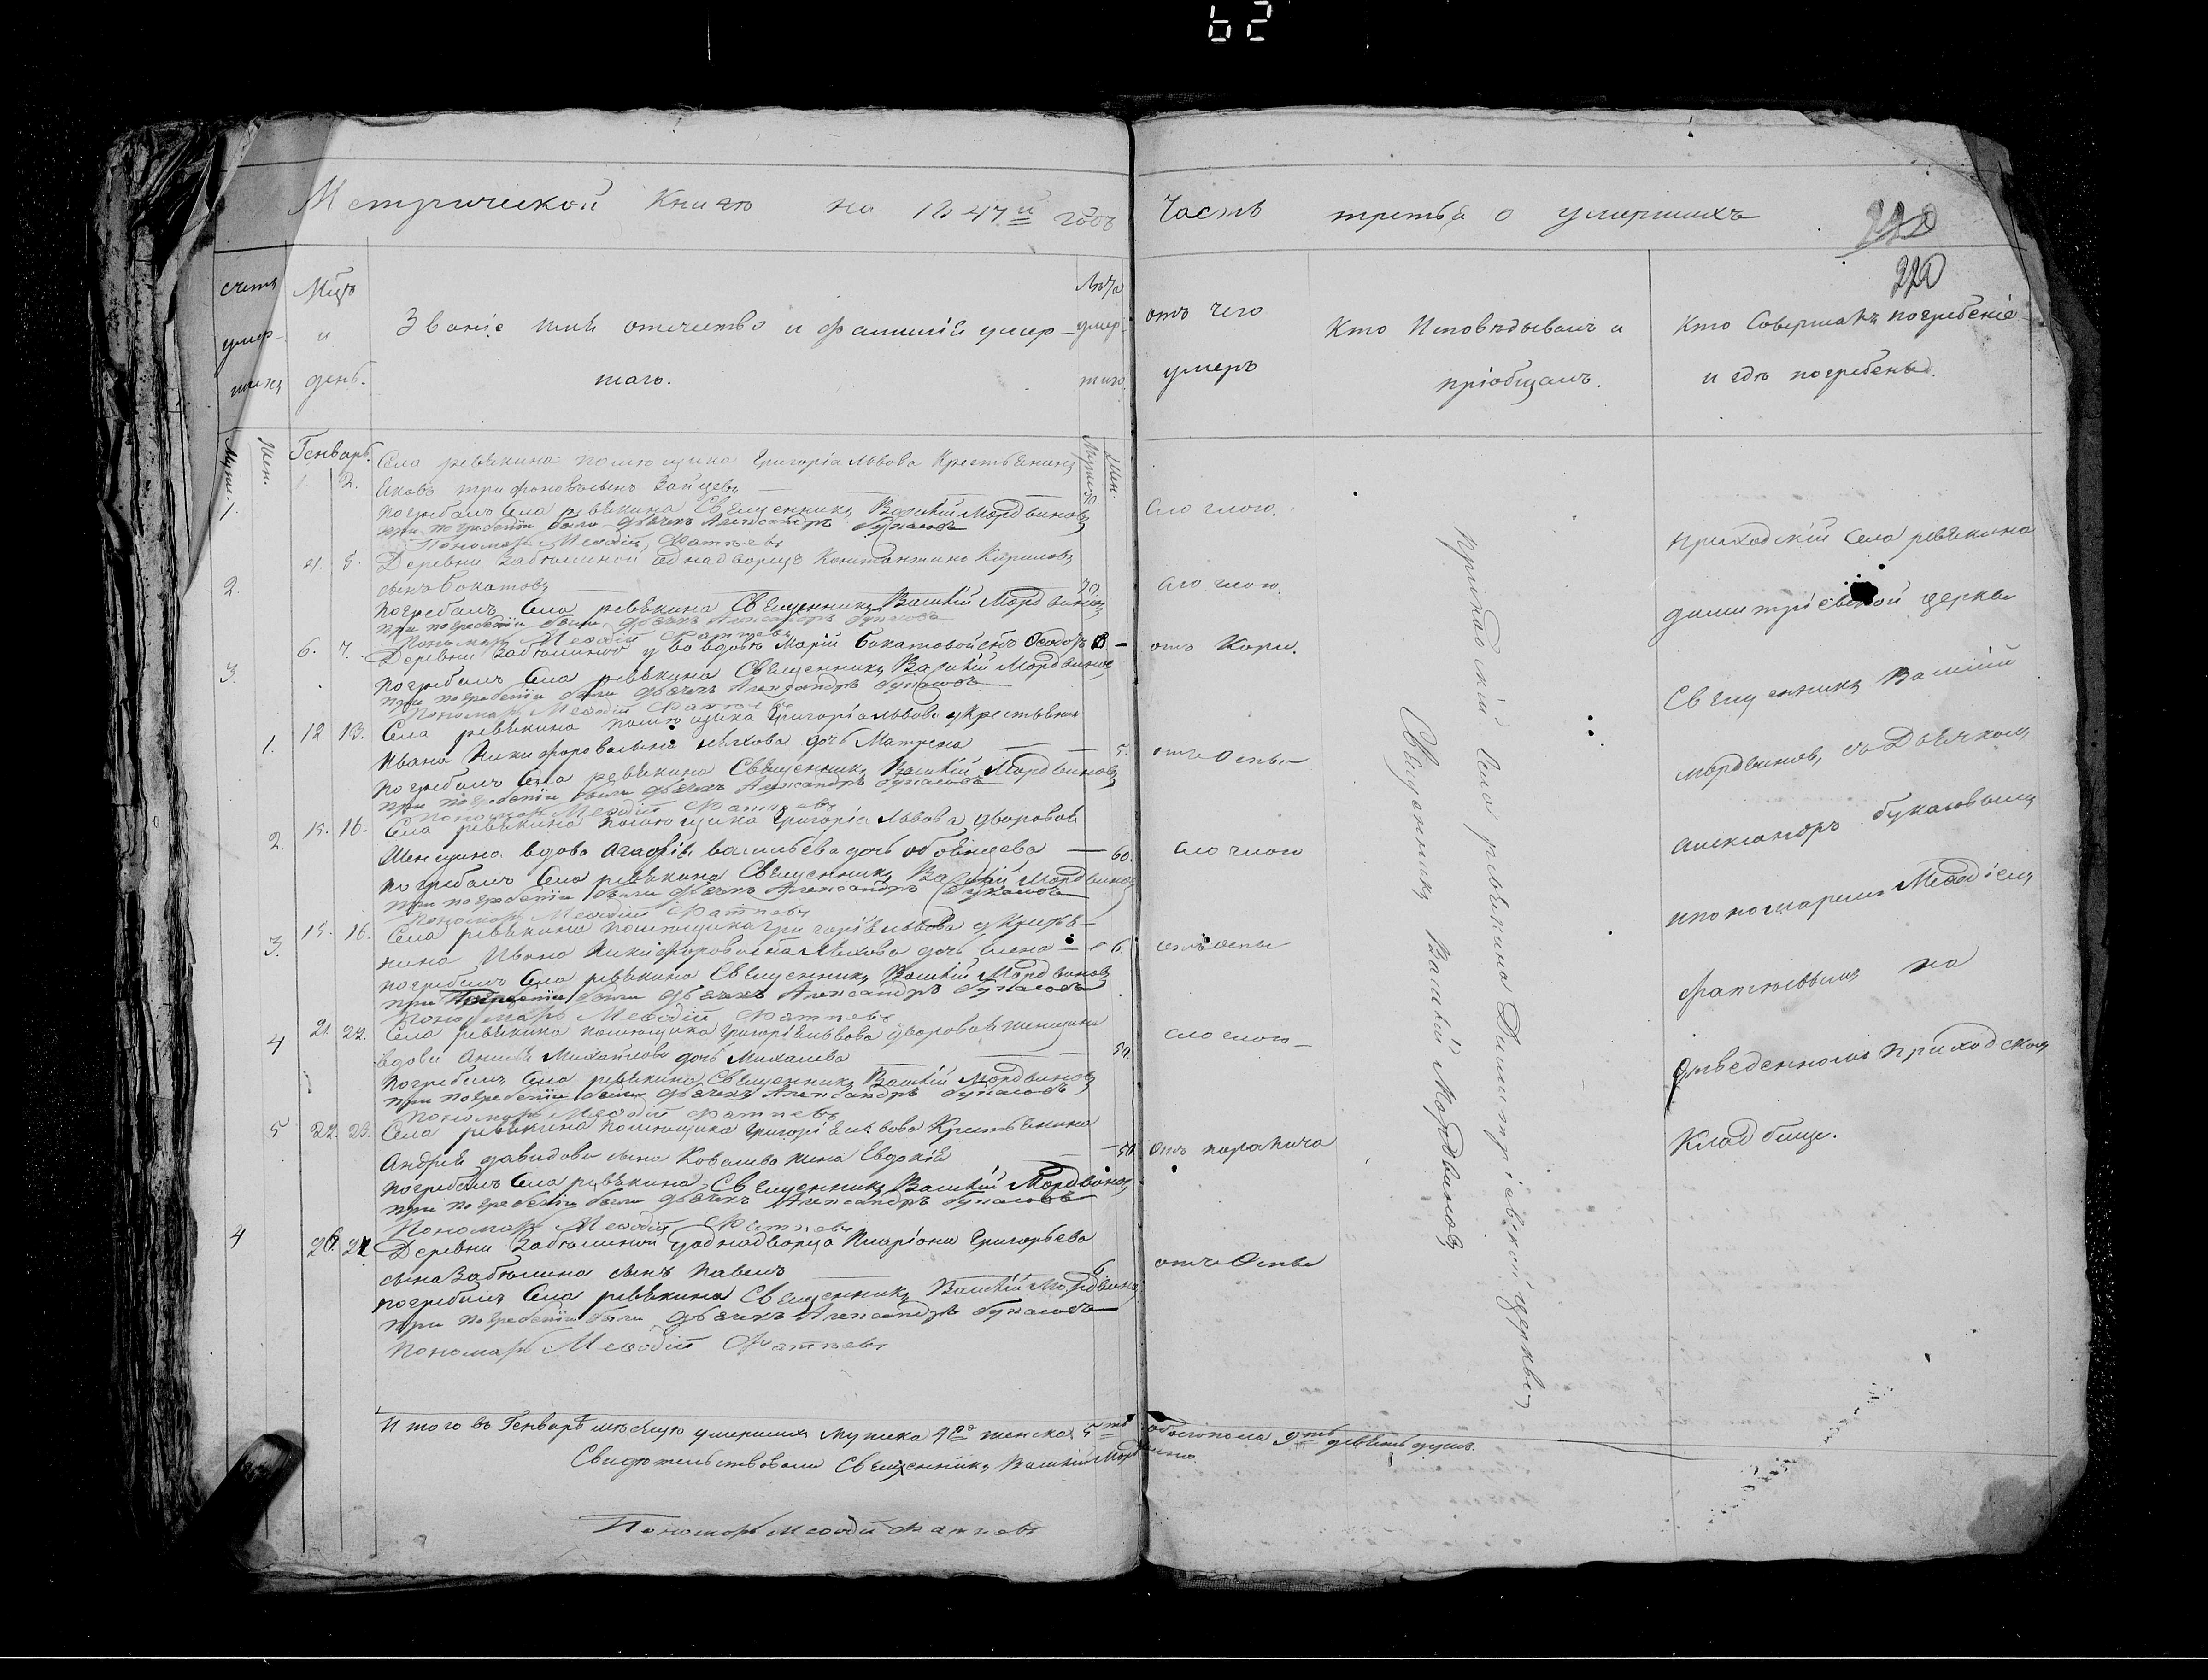 62
Метрической Книги на 1847й годъ
Часть третья о умершихъ
220
220
счетъ умер- шихъ
Мцъ и день.
Званіе имя отечество и фамилія умер-
шаго.
Лѣта умер- шаго
отъ чего
умеръ
Кто Исповѣдывалъ и
пріобщалъ.
Кто Совершалъ погребеніе
и гдѣ погребены.
Муже. Жен.
Генварь.
Мужес. Жен.
1. 2. Села ревякина помѣщика Григорія Львова Крестьянинъ
Яковъ трифоновъ сынъ Зайцевъ
1. погребалъ Села ревякина Священникъ Василій Мордвиновъ
при погребеніи были дьячекъ Александръ Букасовъ
Пономарь Меѳодій Фатѣевъ
слогмою.
4. 5. Деревни Забѣлиной однадворецъ Константинъ Кириловъ
2. сынъ Бокатовъ 70.
слогмою.
погребалъ Села ревякина Священникъ Василій Мордвиновъ
при погребеніи были дьячекъ Александръ Букасовъ
Пономарь Меѳодій Фатѣевъ
6. 7. Деревни Забѣлиной у вдовы Маріи Бокатовой сынъ Ѳеодоръ
отъ Кори.
3. погребалъ Села ревякина Священникъ Василій Мордвиновъ
при погребеніи были дьячекъ Александръ Букасовъ
Пономарь Меѳодій Фатѣевъ
12. 13. Села ревякина помѣщика Григорія Львова у крестьянина
1. Ивана Никифорова сына Мѣхова дочь Матрена 5.
отъ Оспы
погребалъ Села ревякина Священникъ Василій Мордвиновъ
при погребеніи были дьячекъ Александръ Букасовъ
Пономарь Меѳодій Фатѣевъ
2. 15. 16. Села ревякина помѣщика Григорія Львова дворовая
Женщина вдова Агафія васильева дочь 60.
погребалъ Села ревякина Священникъ Василій Мордвиновъ
при погребеніи были дьячекъ Александръ Букасовъ
Пономарь Меѳодій Фатѣевъ
15. 16. Села ревякина помѣщика Григорія Львова у Крестья-
3. нина Ивана Никифорова сына Мѣхова дочь Елена 6.
отъ оспы
погребалъ Села ревякина Священникъ Василій Мордвиновъ
при погребеніи были дьячекъ Александръ Букасовъ
Пономарь Меѳодій Фатѣевъ
4 21. 22. Села ревякина помѣщика Григорія Львова дворовая женщина
вдова Михайлова дочь Михалева 50.
погребалъ Села ревякина Священникъ Василій Мордвиновъ
при погребеніи были дьячекъ Александръ Букасовъ
Пономарь Меѳодій Фатѣевъ
5 22. 23. Села ревякина помѣщика Григорія Львова Крестьянина
Андрея давидова сына Ковалева жена Евдокія 50
отъ паралича
погребалъ Села ревякина Священникъ Василій Мордвиновъ
при погребеніи были дьячекъ Александръ Букасовъ
Пономарь Меѳодій Фатѣевъ
4 Деревни Забѣлиной у однадворца Иларіона Григорьева
сына Забѣлина сынъ павелъ 6
отъ Оспы
погребалъ Села ревякина Священникъ Василій Мордвиновъ
при погребеніи были дьячекъ Александръ Букасовъ
Пономарь Меѳодій Фатѣевъ
Итого въ Генварѣ мѣсяцѣ умершихъ мужска 4 женска 5 обоегопола 9ть девять душъ.
Свидѣтельствовали Священникъ Василій Мордвиновъ
Пономарь Меѳодій Фатѣевъ
приходскій Села ревякина Димитріевской церкви
Священникъ Василій Мордвиновъ
приходскій Села ревякина
димитріевской церкви
Священникъ Василій
мордвиновъ, съ Дьячкомъ
александръ букасовымъ
ипономаремъ Меѳодіемъ
фатѣевымъ на
отведенномъ приходскомъ
Кладбище.